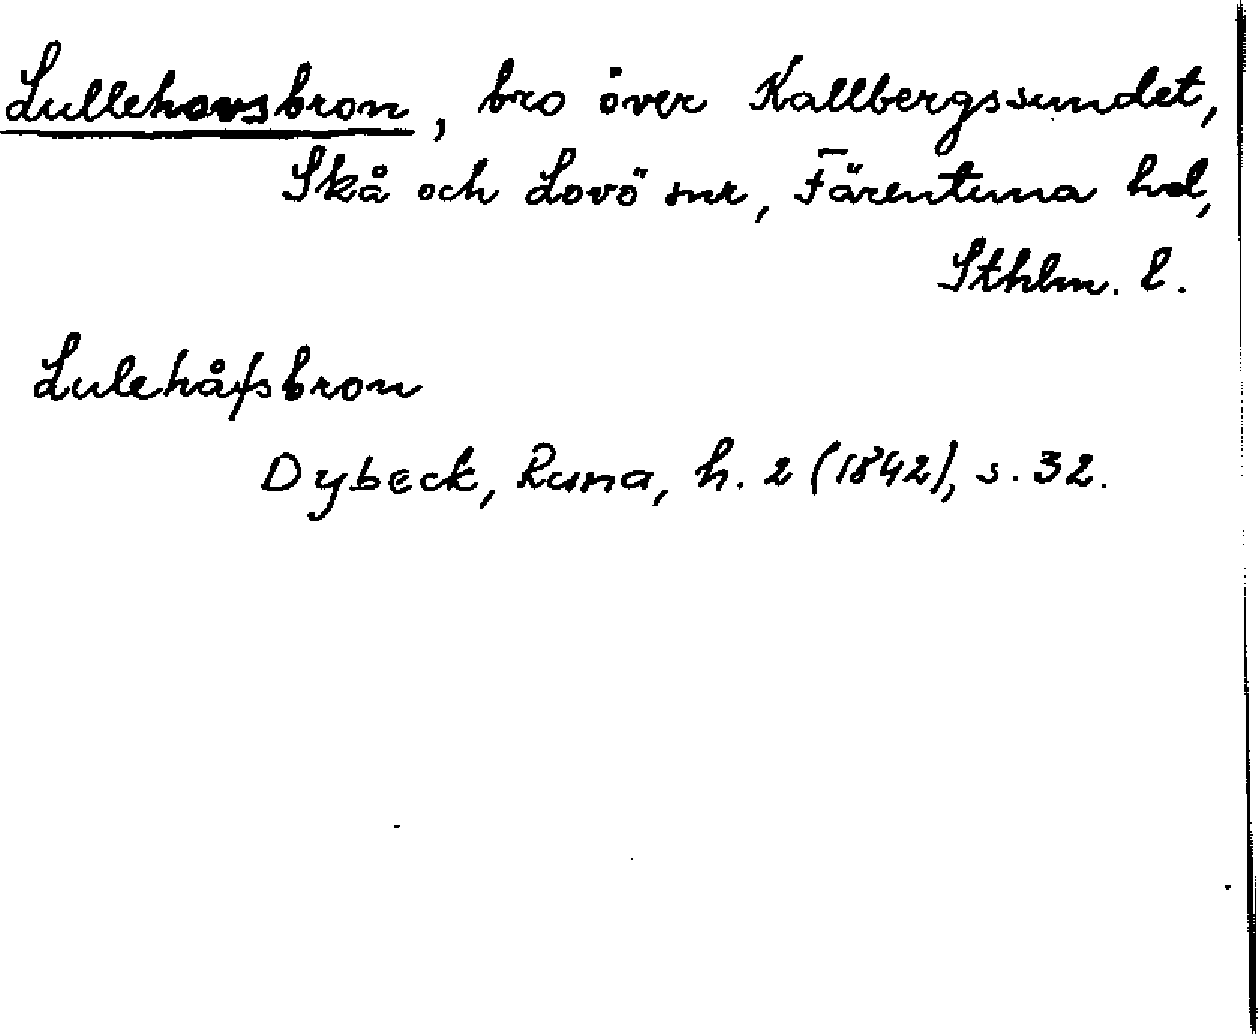 Lullehovsbron, bro över Kallbergssundet,
Skå och Lovö snr, Färentuna hd,
Sthlm. l.
Lulehåfsbron
Dybeck, Runa, h. 2 (1842), s. 32.